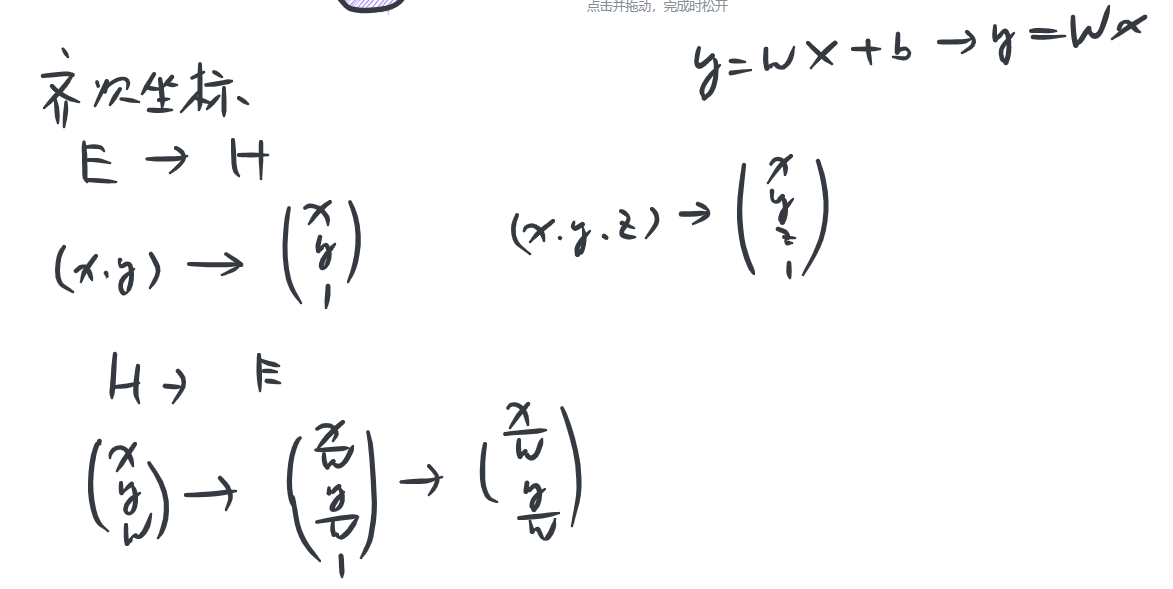 点击并拖动，完成时松开
y = W X + b → y = W x
齐次坐标
E → H
(x.y) → (x y 1)
(x.y.z) → (x y z 1)
H → E
(x y W) → (x/W y/W 1) → (x/W y/W)